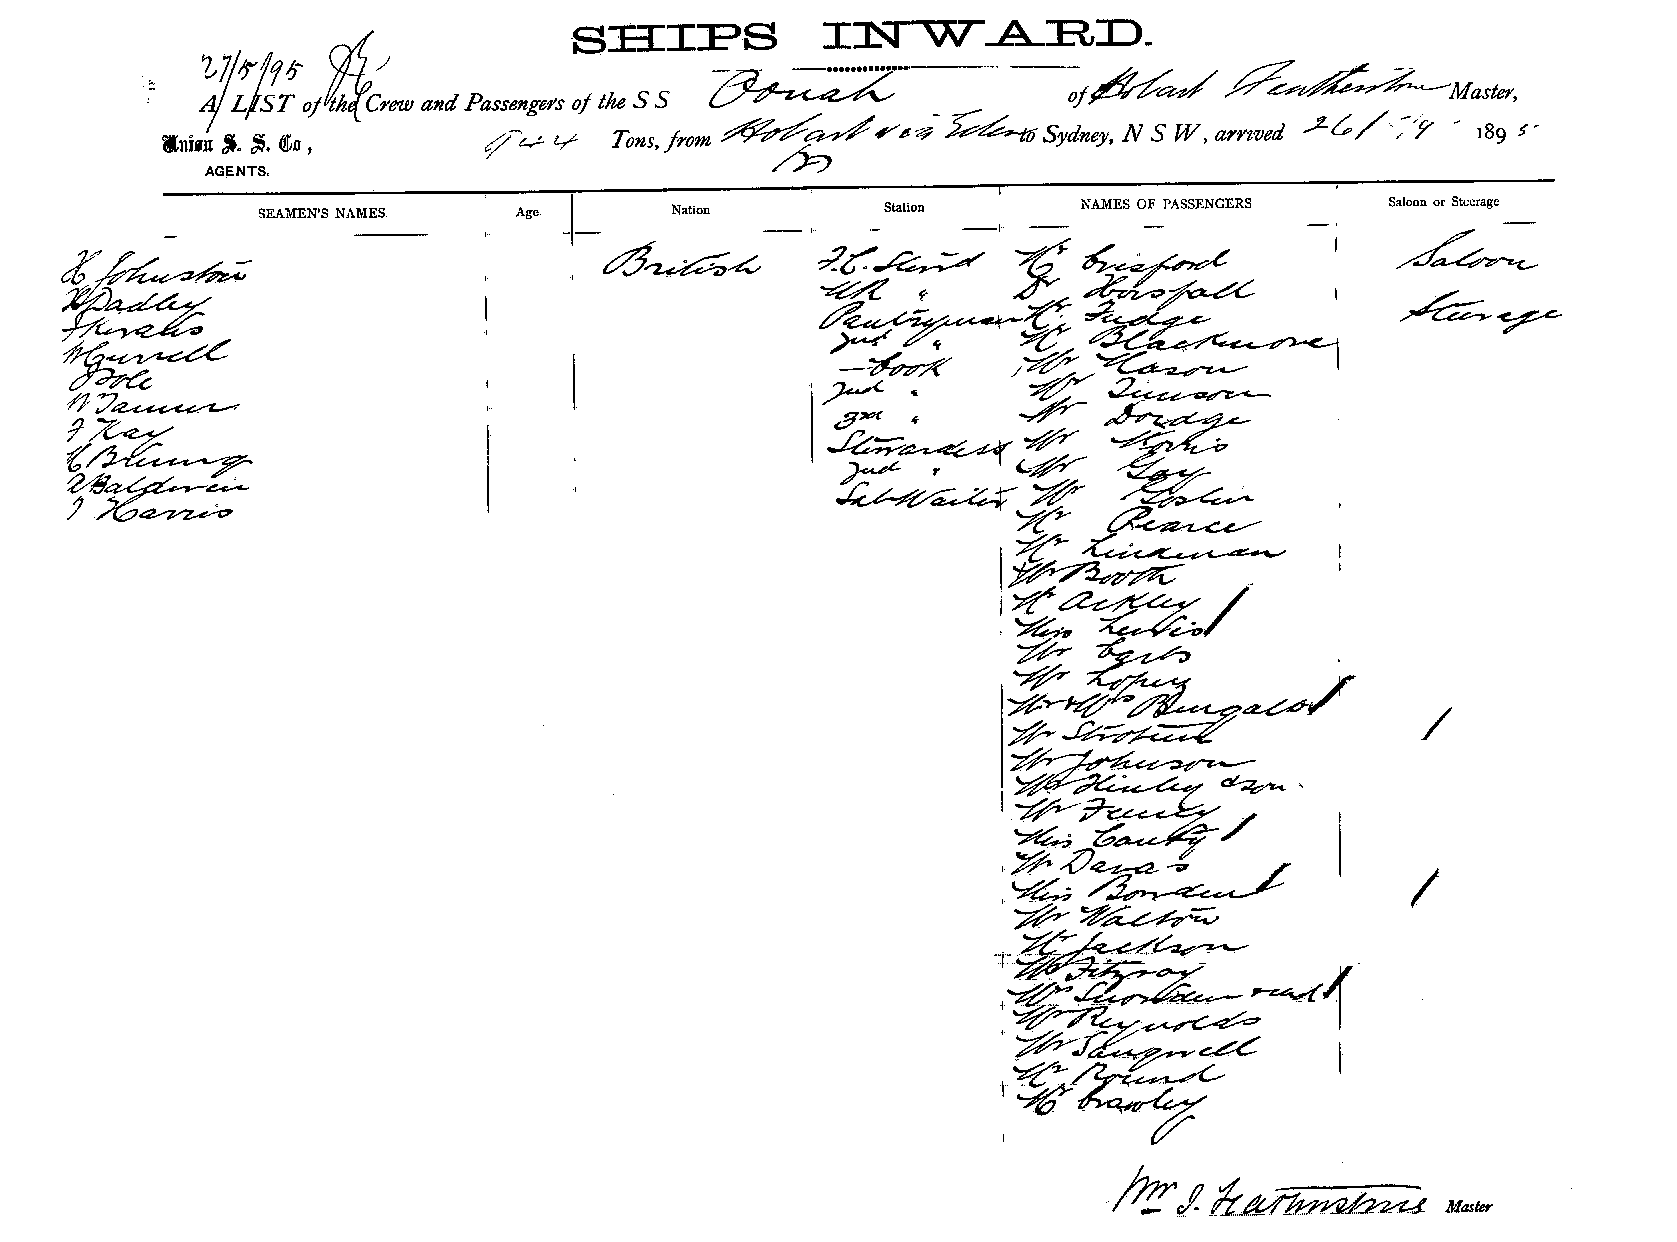 SHIPS INWARD.
27/5/95
A LIST of the Crew and Passengers of the S S Oonah of Hobart Featherstone Master,
Union S. S. Co, 944 Tons, from Hobart via Eden to Sydney, N S W, arrived 26/ 189 5
AGENTS.
SEAMEN'S NAMES. Age. Nation Station NAMES OF PASSENGERS Saloon or Steerage
H Johnston British F.C. Stewd Mr Crisford Saloon
H Dadley " Dr Horsfall
Pantryman Mr Fudge Steerage
W Gurrell 2nd " Mr Blackmore
Cook Mr Mason
W Tanner 2nd " Mr Timson
F Kay 3rd " Mr Dodge
Stewardess Mr Morris
Baldwin 2nd " Mr Gay
Harris Sal Waiter Mr Goslin
Mr Pearce
Mr Lindeman
Mr Booth
Mr Ackley
Miss Lewis
Mr
Mr Lopez
Mr & Mrs
Mr
Mr Johnson
Mr Hinley & son.
Mr
Miss Canty
Mr
Miss Bowden
Mr Walton
Mr Jackson
Mr Fitzroy
Mrs Snowden
Mr Reynolds
Mr Sangwell
Mr Round
Mr Crawley
Wm J. Featherstone Master